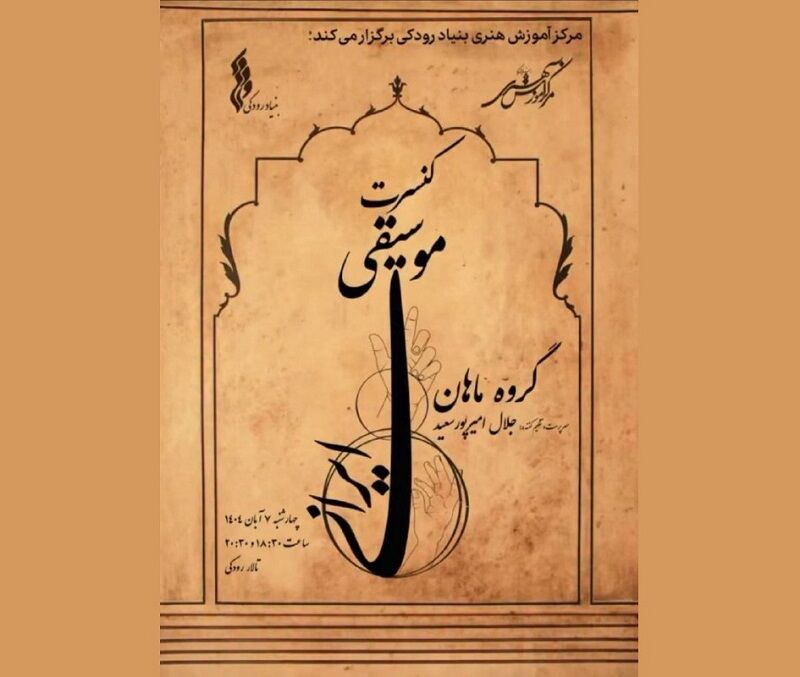 مرکز آموزش هنری بنیاد رودکی برگزار می کند:
مرکز آموزش هنری
بنیاد رودکی
کنسرت
موسیقی
ایرانی
گروه ماهان
سرپرست و تنظیم کننده: جلال امیرپورسعید
چهارشنبه ۷ آبان ۱۴۰۴
ساعت ۱۸:۳۰ و ۲۰:۳۰
تالار رودکی